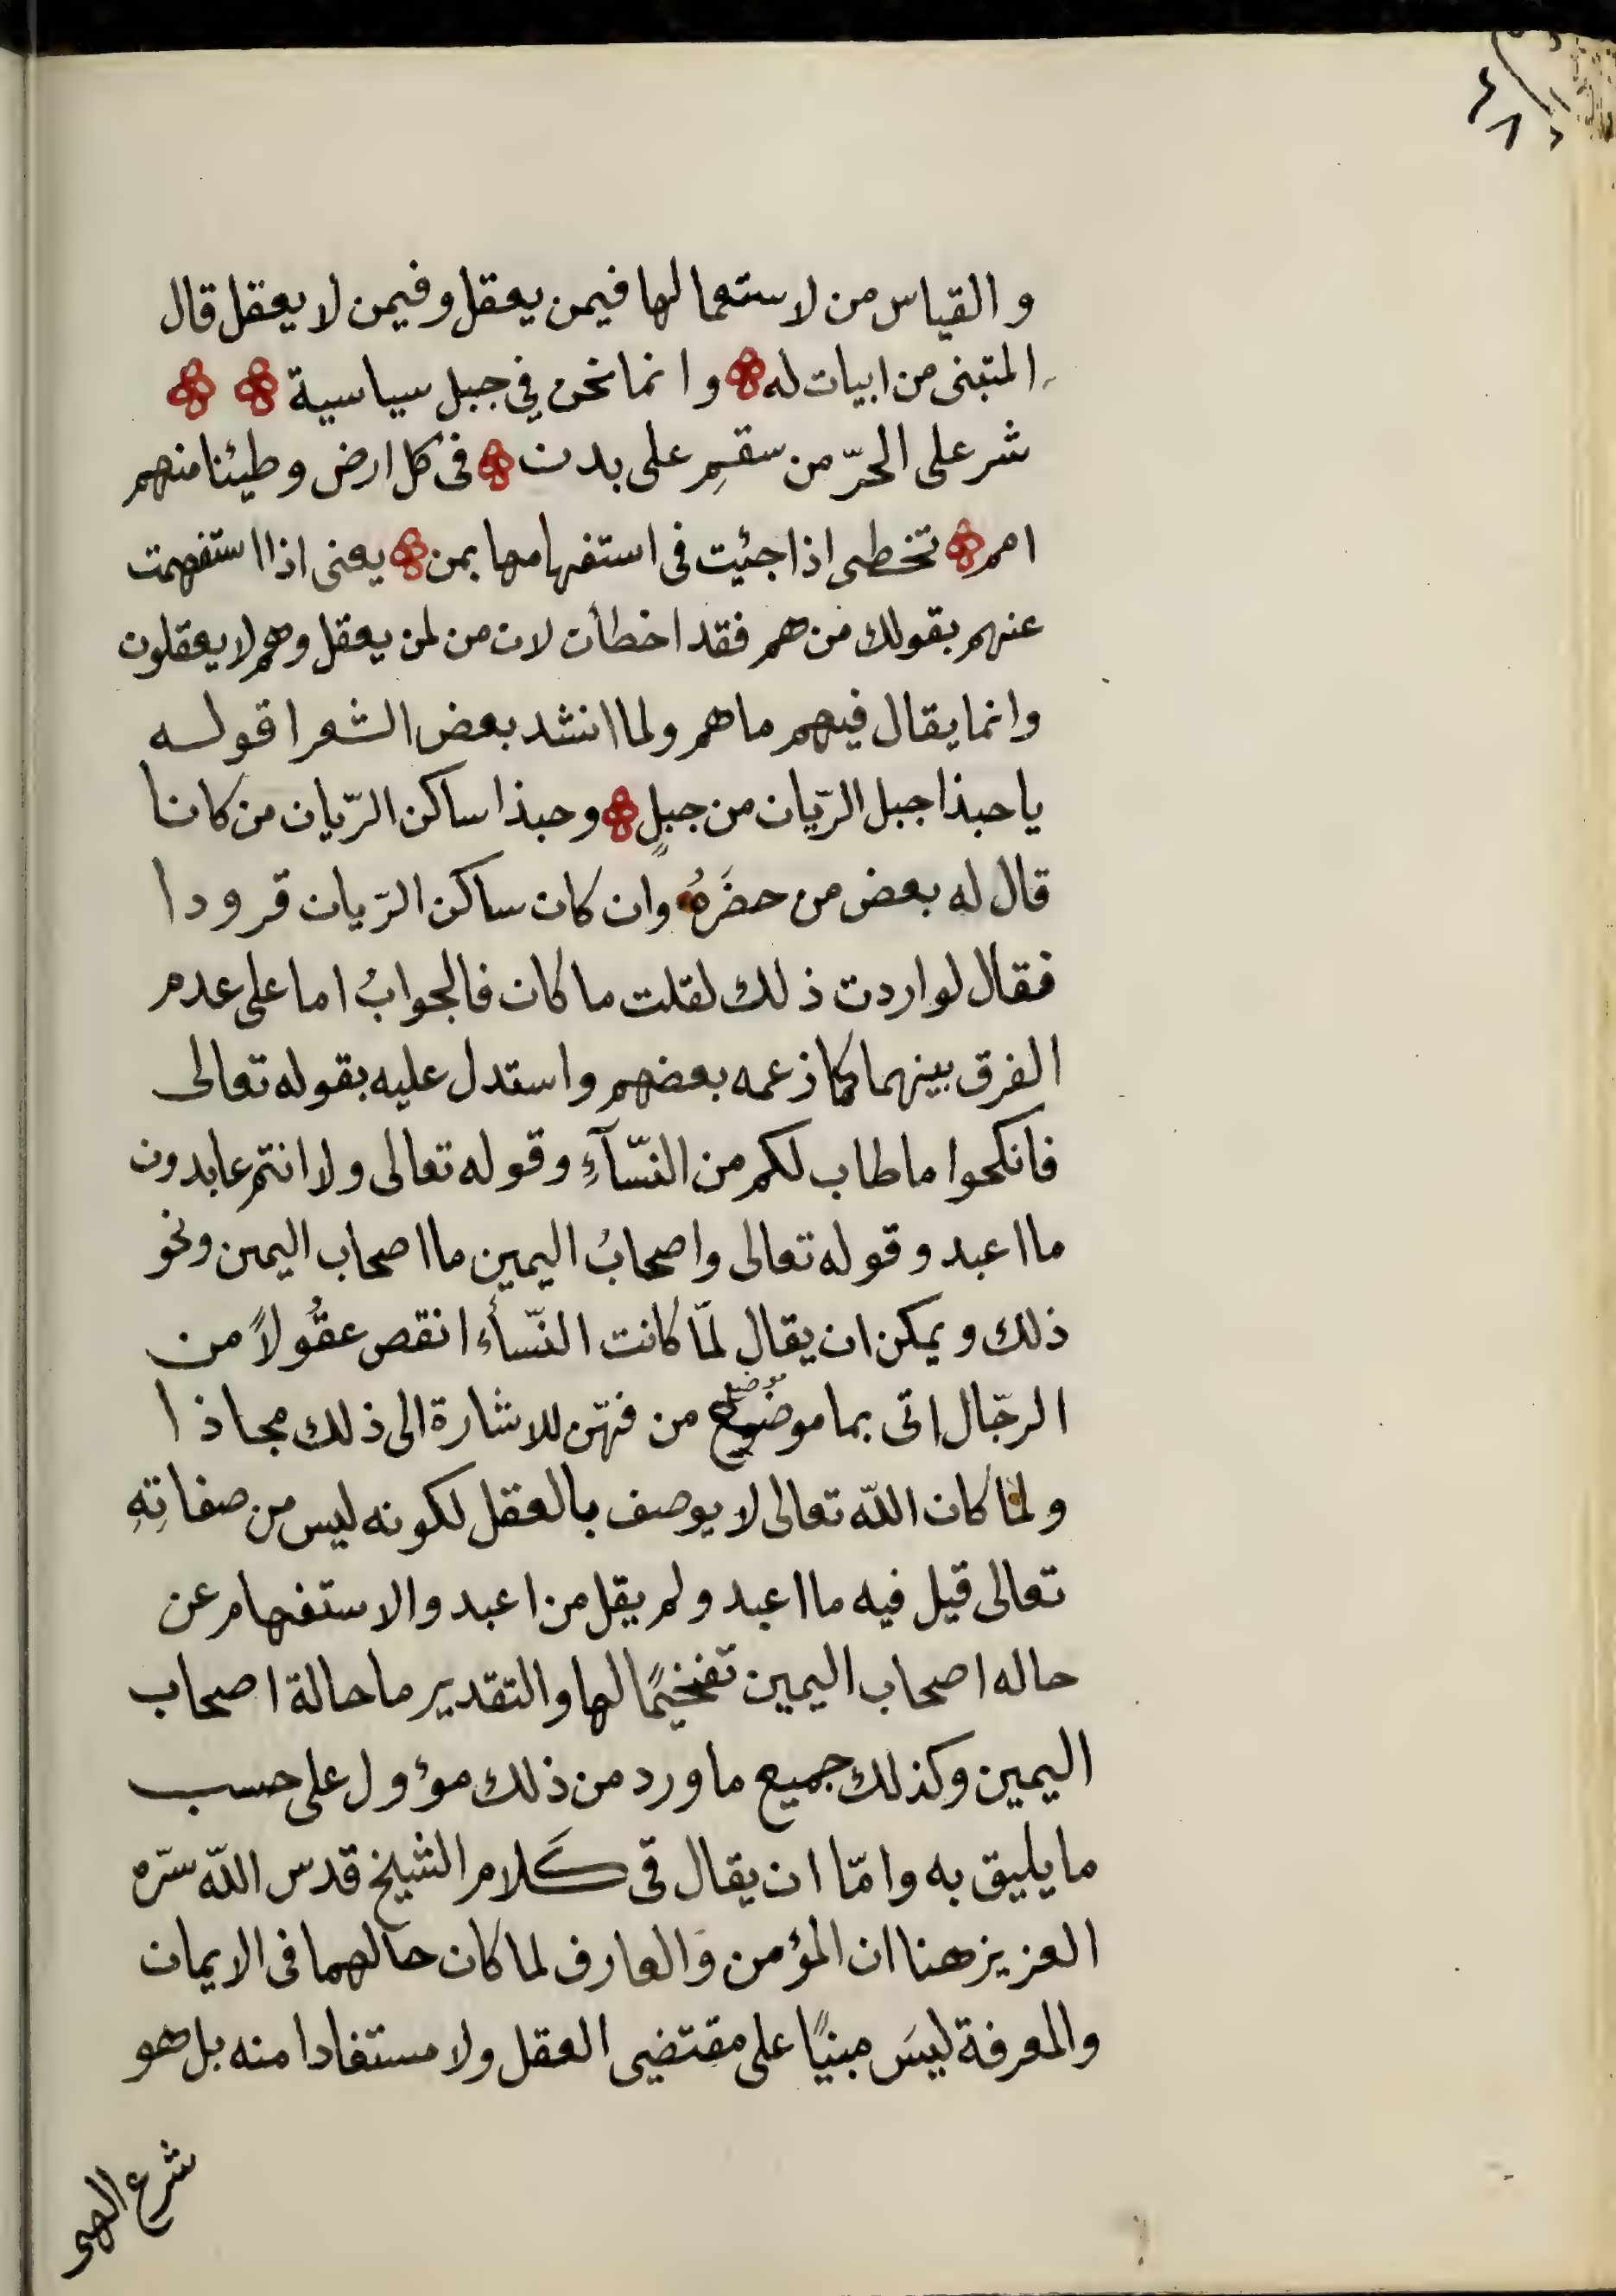 والقياس من لاستعمالها فيمن يعقل وفيمن لا يعقل قال
المتبنى من ابيات له وانما نحن في جبل سياسية
شر على الحرّ من سقمِ على بدن فى كل ارض وطيئنا منهم
امم تخطى اذا جئيت فى استفهامها بمن يعنى اذا استفهمت
عنهم بقولك من هم فقد اخطأت لان من لمن يعقل وهم لا يعقلون
وانما يقال فيهم ما هم ولما انشد بعض الشعرا قوله
يا حبذا جبل الريّان من جبلٍ وحبذا ساكن الريّان من كانا
قال له بعض من حضَرَهُ وان كان ساكن الريّان قرودا
فقال لو اردت ذلك لقلت ما كان فالجوابُ اما على عدم
الفرق بينهما كما زعمه بعضهم واستدل عليه بقوله تعالى
فانكحوا ما طاب لكم من النّسآءِ وقوله تعالى ولا انتم عابدون
ما اعبد وقوله تعالى واصحابُ اليمين ما اصحاب اليمين ونحو
ذلك ويمكن ان يقال لمّا كانت النّسأء انقص عقُولاً من
الرجّال اتى بما موضوع موضع من فهّن للاشارة الى ذلك مجاذا
ولمّا كان اللّه تعالى لا يوصف بالعقل لكونه ليس من صفاتِهِ
تعالى قيل فيه ما اعبد ولم يقل من اعبد والاستفهام عن
حاله اصحاب اليمين تفخيمًا لها والتقدير ما حالة اصحاب
اليمين وكذلك جميع ما ورد من ذلك مؤول على حسب
ما يليق به وامّا ان يقال فى كَلام الشيخ قدس اللّه سرّه
العزيز هنا ان المؤمن وَالعارف لما كان حالهما فى الايمان
والمعرفة ليسَ مبنيًا على مقتضى العقل ولا مستفادا منه بل هو
شرع الهى